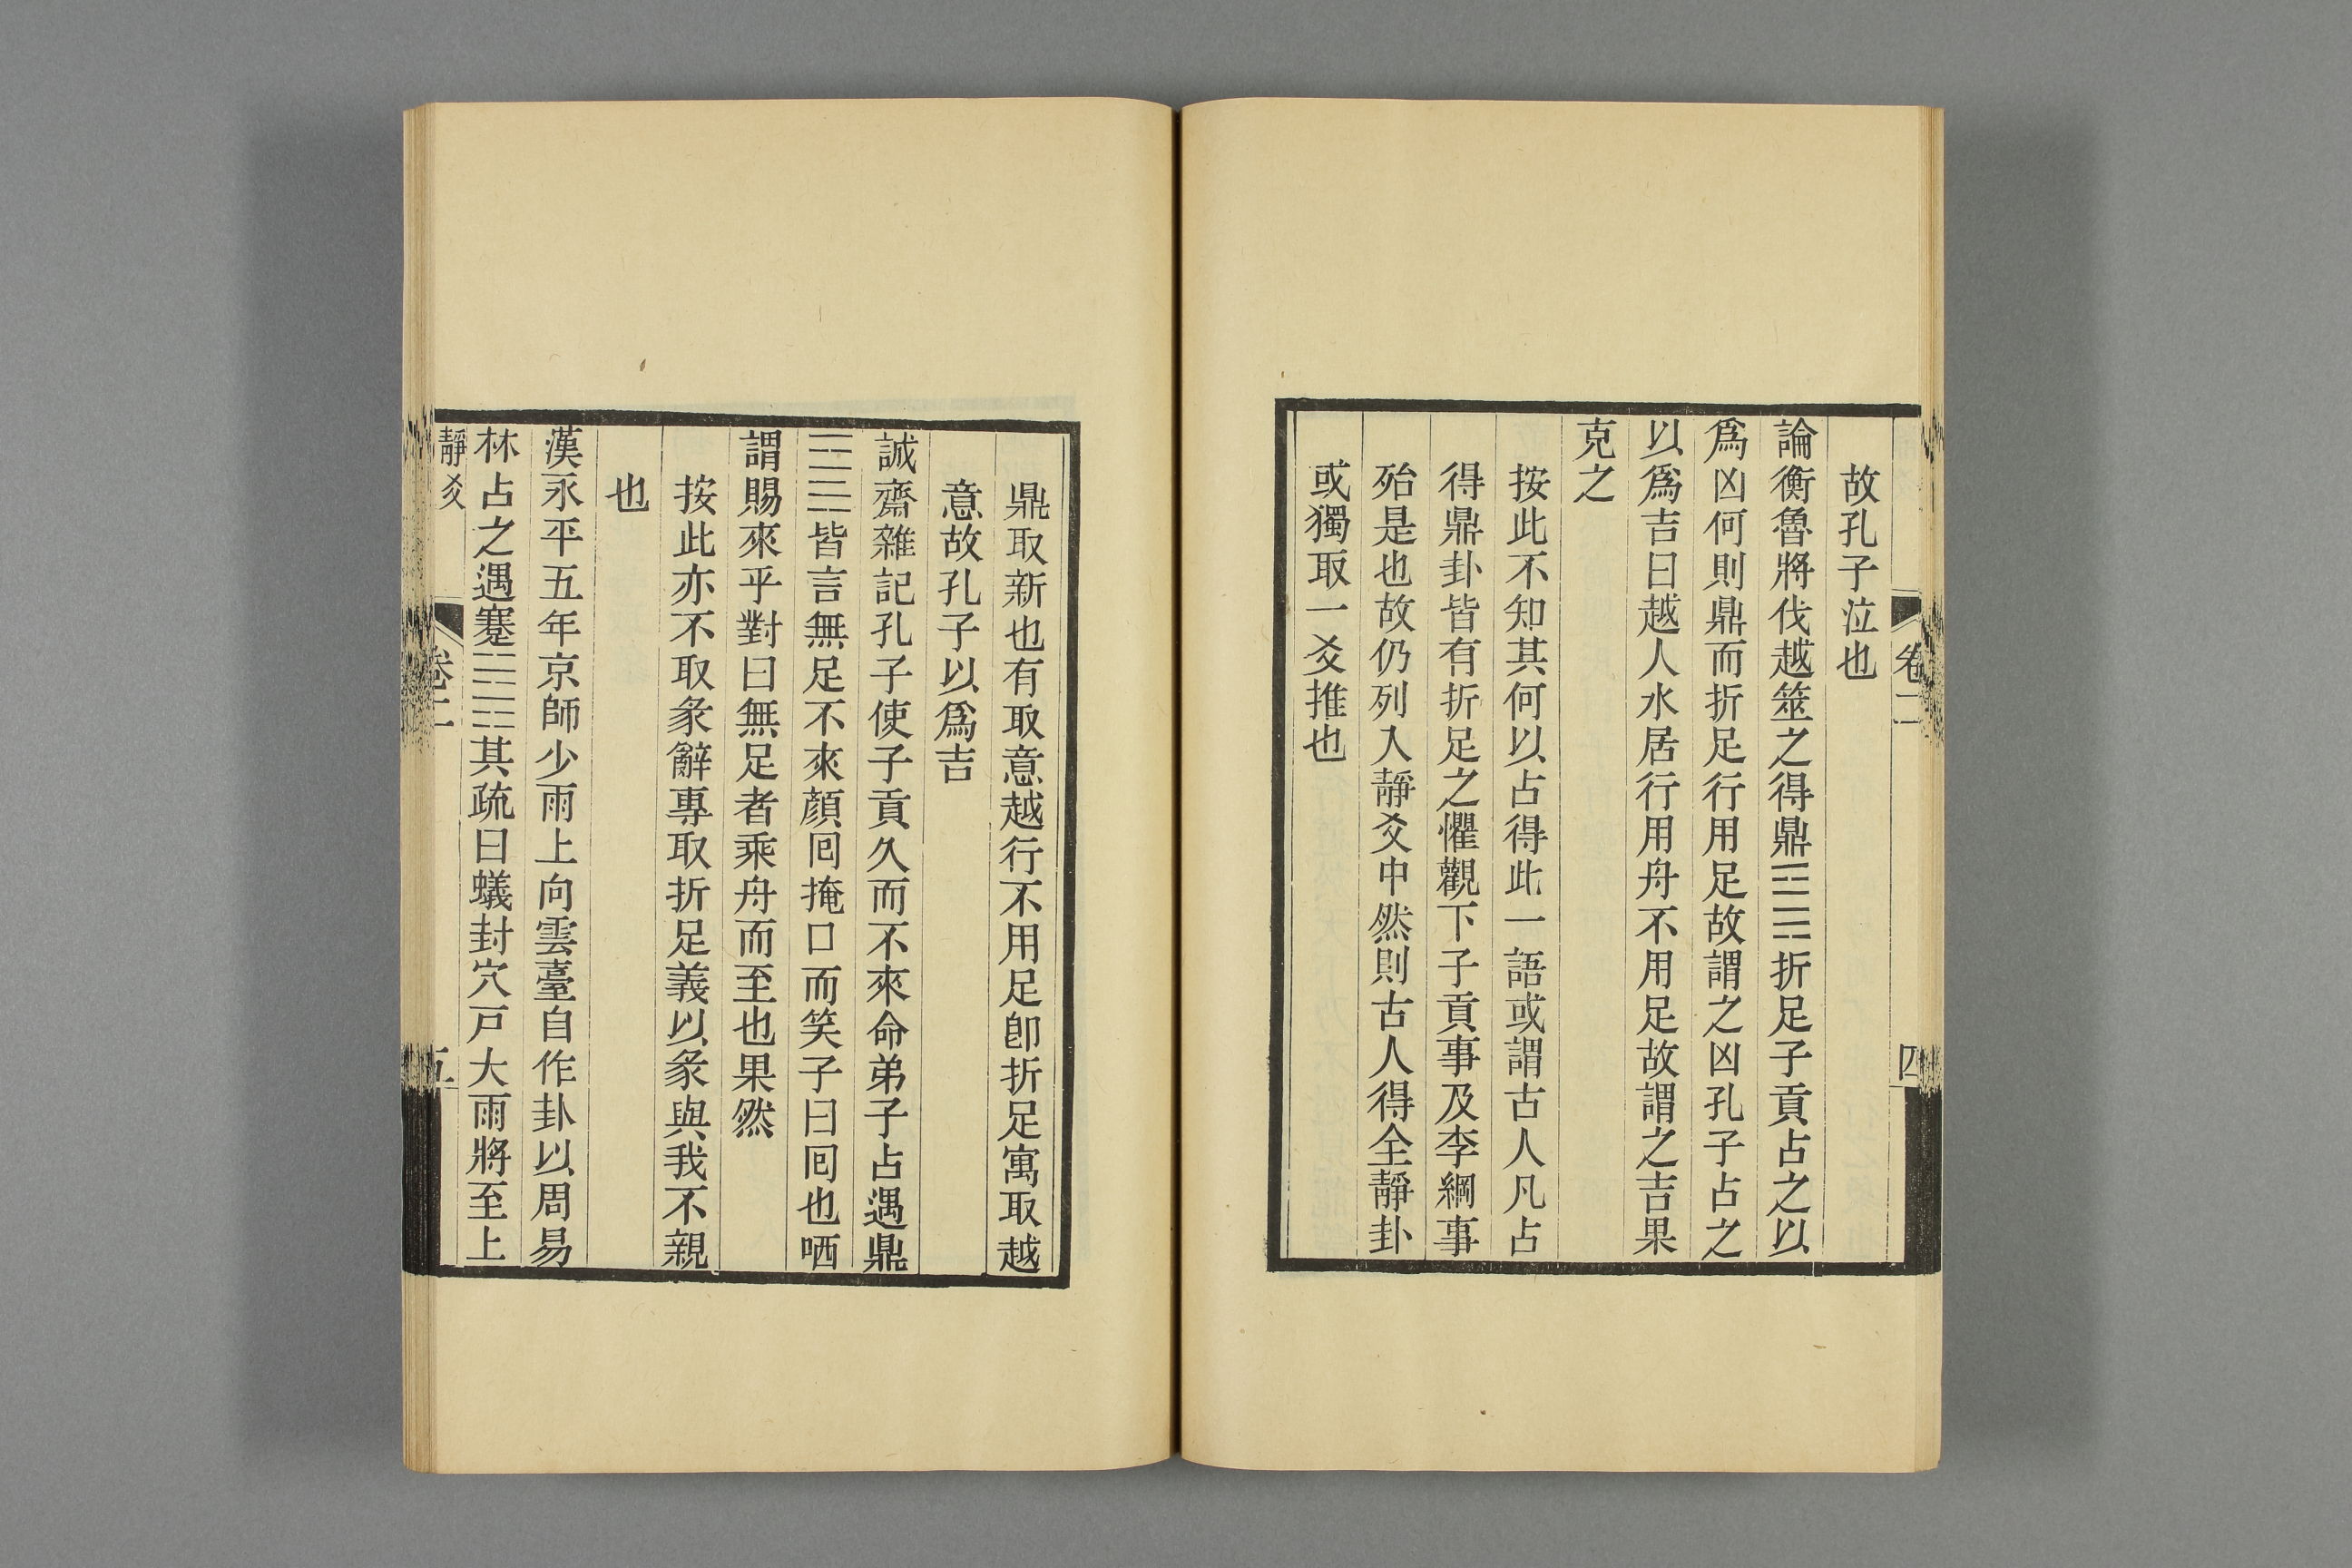 卷二
四
故孔子泣也
論衡魯將伐越筮之得鼎䷱折足子貢占之以
爲凶何則鼎而折足行用足故謂之凶孔子占之
以爲吉曰越人水居行用舟不用足故謂之吉果
克之
按此不知其何以占得此一語或謂古人凡占
得鼎卦皆有折足之懼觀下子貢事及李綱事
殆是也故仍列入靜爻中然則古人得全靜卦
或獨取一爻推也
鼎取新也有取意越行不用足卽折足寓取越
意故孔子以爲吉
誠齋雜記孔子使子貢久而不來命弟子占遇鼎
䷱皆言無足不來顏囘掩口而笑子曰囘也哂
謂賜來乎對曰無足者乘舟而至也果然
按此亦不取彖辭專取折足義以彖與我不親
也
漢永平五年京師少雨上向雲臺自作卦以周易
林占之遇蹇䷦其疏曰蟻封穴戸大雨將至上
靜爻
卷二
五